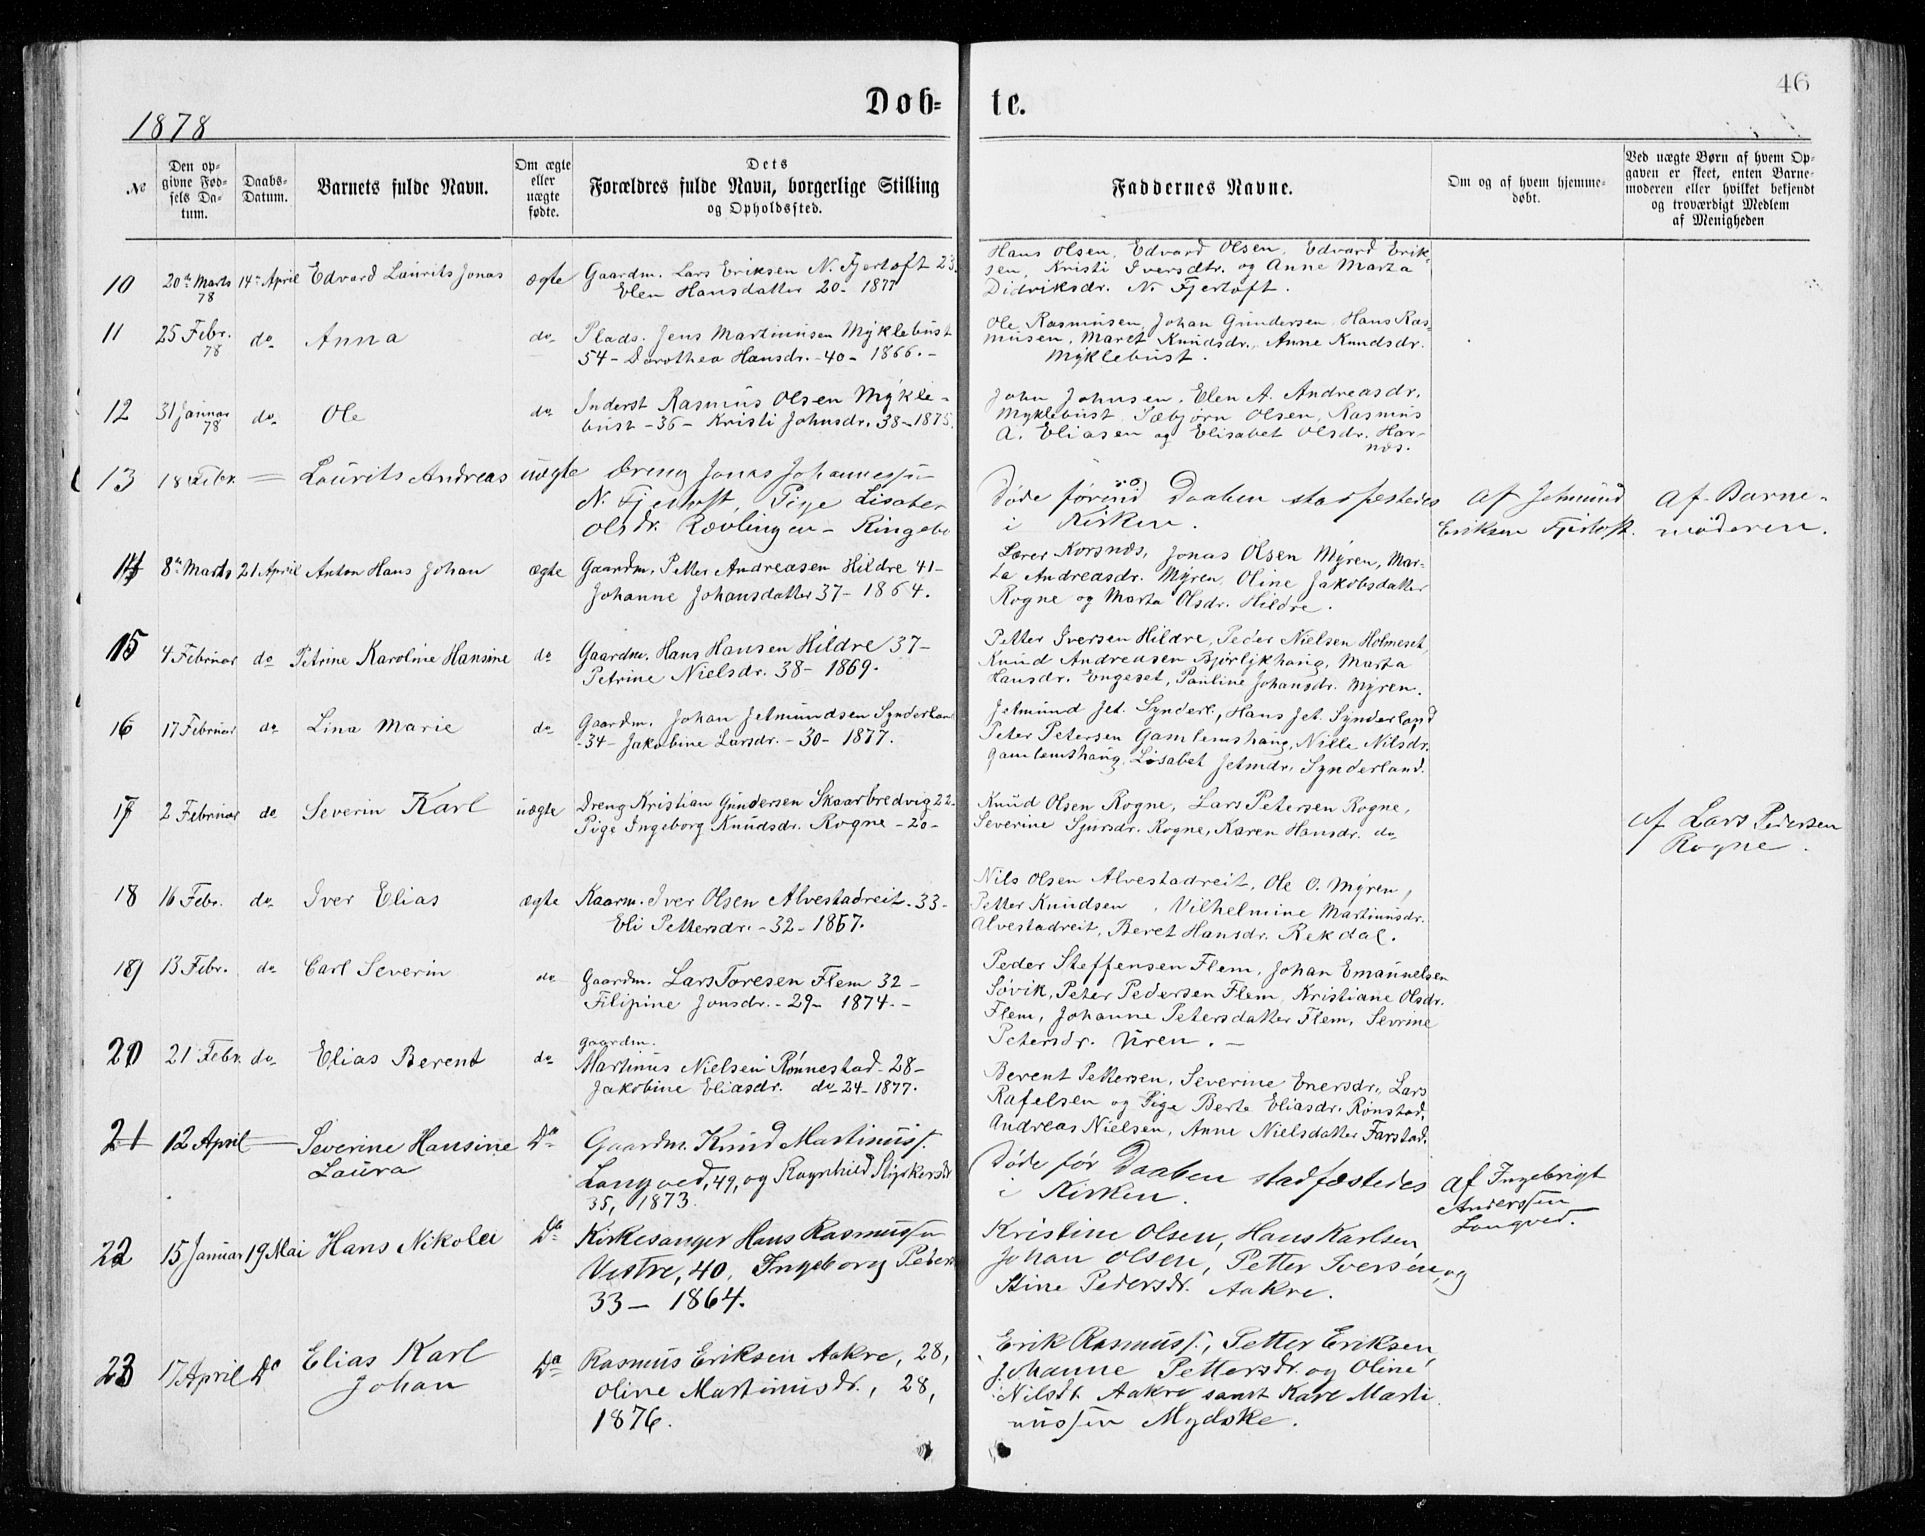 46
Dob-
te.
1878
№
Den op-
givne Fød-
sels Da-
tum.
Daabs-
Datum.
Barnets fulde Navn.
Om ægte
eller
uægte
fødte.
Dets
Forældres fulde Navn, borgerlige Stilling
og Opholdssted.
Faddernes Navne.
Om og af hvem hjemme-
døbt.
Ved uægte Børn af hvem Op-
gaven er skeet, enten Barne-
moderen eller hvilket bekjendt
og troværdigt Medlem
af Menigheden
10
20de Marts
78
14de April
Edvard Laurits Jonas
ægte
Gaardm. Lars Eriksen N. Fjertoft 23.
Elen Hansdatter 20 - 1877
Hans Olsen, Edvard Olsen, Edvard Erik-
sen, Kristi Iversdtr. og Anne Marta
Didriksdr. N. Fjertoft.
11
25 Febr.
78
do
Anna
do
Plads. Jens Martinusen Myklebust
54 - Dorothea Hansdr. - 40 - 1866. -
Ole Rasmusen, Johan Gundersen, Hans Ras-
musen, Maret Knudsdr., Anne Knudsdr.
Myklebust.
12
31 Januar
78
do
Ole
do
Inderst Rasmus Olsen Mykle-
bust - 36 - Kristi Johnsdr. 38 - 1875.
John Johnsen, Elen A. Andreasdr.
Myklebust, Sæbjørn Olsen, Rasmus
A. Eliasen og Elisabet Olsdr. Har-
næs.
13
18 Febr.
Laurits Andreas
uægte
Dreng Jonas Johannessen
N. Fjertoft, Pige Lisabet
Olsdr. Røvlingen - Ringebo
Døde førend Daaben stadfæstedes
i Kirken.
af Jetmund
Eriksen Fjertoft.
af Barne-
moderen.
14
8de Marts
21 April
Anton Hans Johan
ægte
Gaardm. Petter Andreasen Hildre 41 -
Johanne Johansdatter 37 - 1864.
Lærer Korsnæs, Jonas Olsen Myren, Mar-
ta Andreasdr. Myren, Oline Jakobsdatter
Rogne og Marta Olsdr. Hildre.
15
4 Februar
do
Petrine Karoline Hansine
do
Gaardm. Hans Hansen Hildre 37 -
Petrine Nielsdr. 38 - 1869.
Petter Iversen Hildre, Peder Nielsen Holmeset,
Knud Andreasen Bjørlykhaug, Marta
Hansdr. Engeset, Pauline Johansdr. Myren.
16
17 Februar
do
Lina Marie
do
Gaardm. Johan Jetmundsen Synderland
- 34 - Jakobine Larsdr. - 30 - 1877.
Jetmund Jet. Synderl., Hans Jet. Synderland
Peter Petersen Gamlemshaug, Nille Nilsdr.
Gamlemshaug, Lisabet Jetmdr. Synderland.
17
2 Februar
do
Severin Karl
uægte
Dreng Kristian Gundersen Skaarbredvig 22 -
Pige Ingeborg Knudsdr. Rogne - 20 -
Knud Olsen Rogne, Lars Petersen Rogne,
Severine Sjursdr. Rogne, Karen Hansdr. do
af Lars Pedersen
Rogne.
18
16 Febr.
do
Iver Elias
ægte
Kaarm. Iver Olsen Alvestadreit - 33 -
Eli Pettersdr. - 32 - 1867.
Nils Olsen Alvestadreit, Ole O. Myren,
Petter Knudsen, Vilhelmine Martinusdr.
Alvestadreit, Beret Hansdr. Rekdal.
19
13 Febr.
do
Carl Severin
do
Gaardm. Lars Toresen Flem 32 -
Filipine Jonsdr. - 29 - 1874. -
Peder Steffensen Flem, Johan Emanuelsen
Søvik, Peter Pedersen Flem, Kristiane Olsdr.
Flem, Johanne Petersdatter Flem, Sevrine
Petersdr. Uren. -
20
21 Febr.
do
Elias Berent
do
gaardm.
Martinus Nielsen Rønnestad - 28 -
Jakobine Eliasdr. do - 24 - 1877.
Berent Pettersen, Severine Enersdr., Lars
Rafelsen og Pige Berte Eliasdr. Rønstad,
Andreas Nielsen, Anne Nielsdatter Farstad.
21
12 April
Severine Hansine
Laura
Do
Gaardm. Knud Martinuss.
Longved, 49, og Ragnhild Styrkersdr
35, 1873.
Døde før Daaben stadfæstedes
i Kirken.
af Ingebrigt
Anderssen
Longved.
22
15 Januar
19 Mai
Hans Nikolai
Do
Kirkesanger Hans Rasmussen
Vestre, 40, Ingeborg Peters
33 - 1864.
Kristine Olsen, Hans Karlsen,
Johan Olsen, Petter Iversen, og
Stine Pedersdr. Aakre.
23
17 April
Do
Elias Karl
Johan
Do
Rasmus Eriksen Aakre, 28,
Oline Martinusdr., 28,
1876.
Erik Rasmuss., Petter Eriksen,
Johanne Pettersdr. og Oline
Nilsdt. Aakre samt Karl Marti
nussen Mydske.